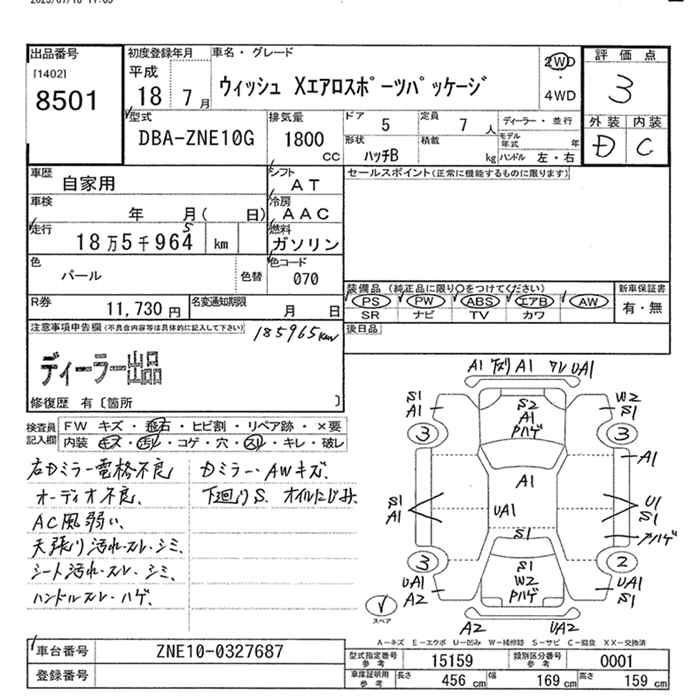 出品番号
[1402]
8501
初度登録年月
平成
18 7月
車名・グレード
ウィッシュ Xエアロスポーツパッケージ
2WD
・
4WD
評価点
3
外装 内装
D C
型式
DBA-ZNE10G
排気量
1800
CC
ドア 5
定員 7人
ディーラー・並行
形状 ハッチB
積載 kg
モデル年式 年
ハンドル 左・右
車歴
自家用
シフト
AT
車検
年 月( 日)
冷房
AAC
走行
18万5千964 km
5
燃料
ガソリン
色
パール
色替
色コード
070
R券
11,730円
名変通知期限
月 日
セールスポイント(正常に機能するものに限ります)
装備品(純正品に限り○をつけてください)
PS PW ABS エアB AW
SR ナビ TV カワ
新車保証書
有・無
後日品
注意事項申告欄(不具合内容等は具体的に記入して下さい)
185965km
ディーラー出品
修復歴 有〔箇所 〕
検査員記入欄
FW キズ・飛石・ヒビ割・リペア跡・×要
内装 キズ・汚れ・コゲ・穴・スレ・キレ・破レ
右ドミラー電格不良
オーディオ不良、
AC風弱い、
天張り汚れ・スレ・シミ、
シート汚れ・スレ・シミ、
ハンドルスレ・ハゲ、
ドミラー・AWキズ、
下廻りS、オイルにじみ
A1 A1 UA1
S1 A1
3
S2 A1 Pハゲ
W2 S1
3
A1
A1
S1 A1
UA1
U1 S1
アハゲ
S1
3
2
UA1 A2
S1 W2 Pハゲ
UA1 S1
スペア
A2 UA2
A-キズ E-エクボ U-凹み W-補修跡 S-サビ C-腐食 XX-交換済
車台番号
ZNE10-0327687
登録番号
型式指定番号 参考
15159
類別区分番号 参考
0001
車庫証明用 参考
長さ 456 cm
幅 169 cm
高さ 159 cm